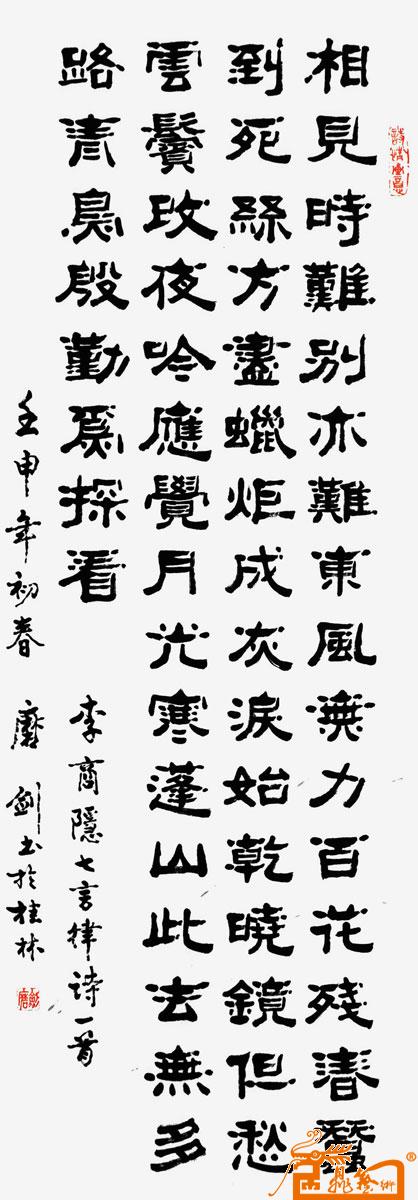 詩情畫意
相見時難別亦難東風無力百花残春蠶
到死絲方盡蠟炬成灰淚始乾曉鏡但愁
雲鬢改夜吟應覺月光寒蓬山此去無多
路青鳥殷勤爲探看
李商隱七言律诗一首
壬申年初春 剑书於桂林